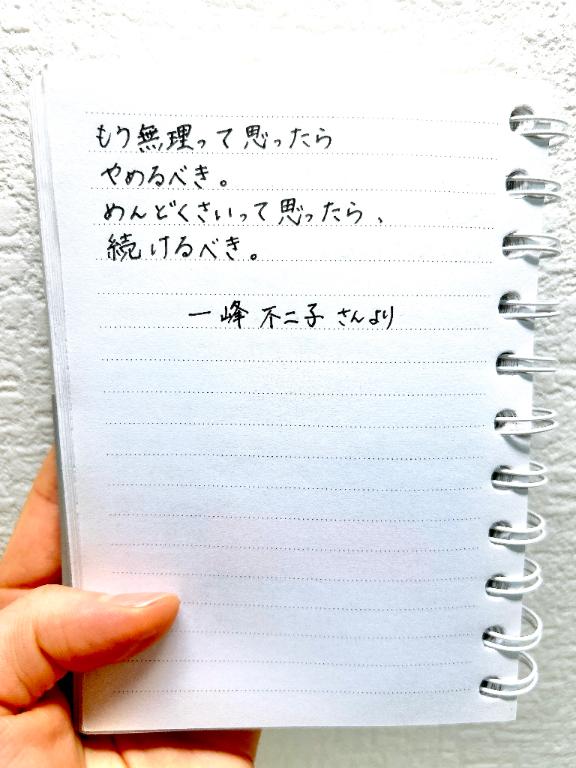 もう無理って思ったら
やめるべき。
めんどくさいって思ったら、
続けるべき。
一峰 不二子 さんより